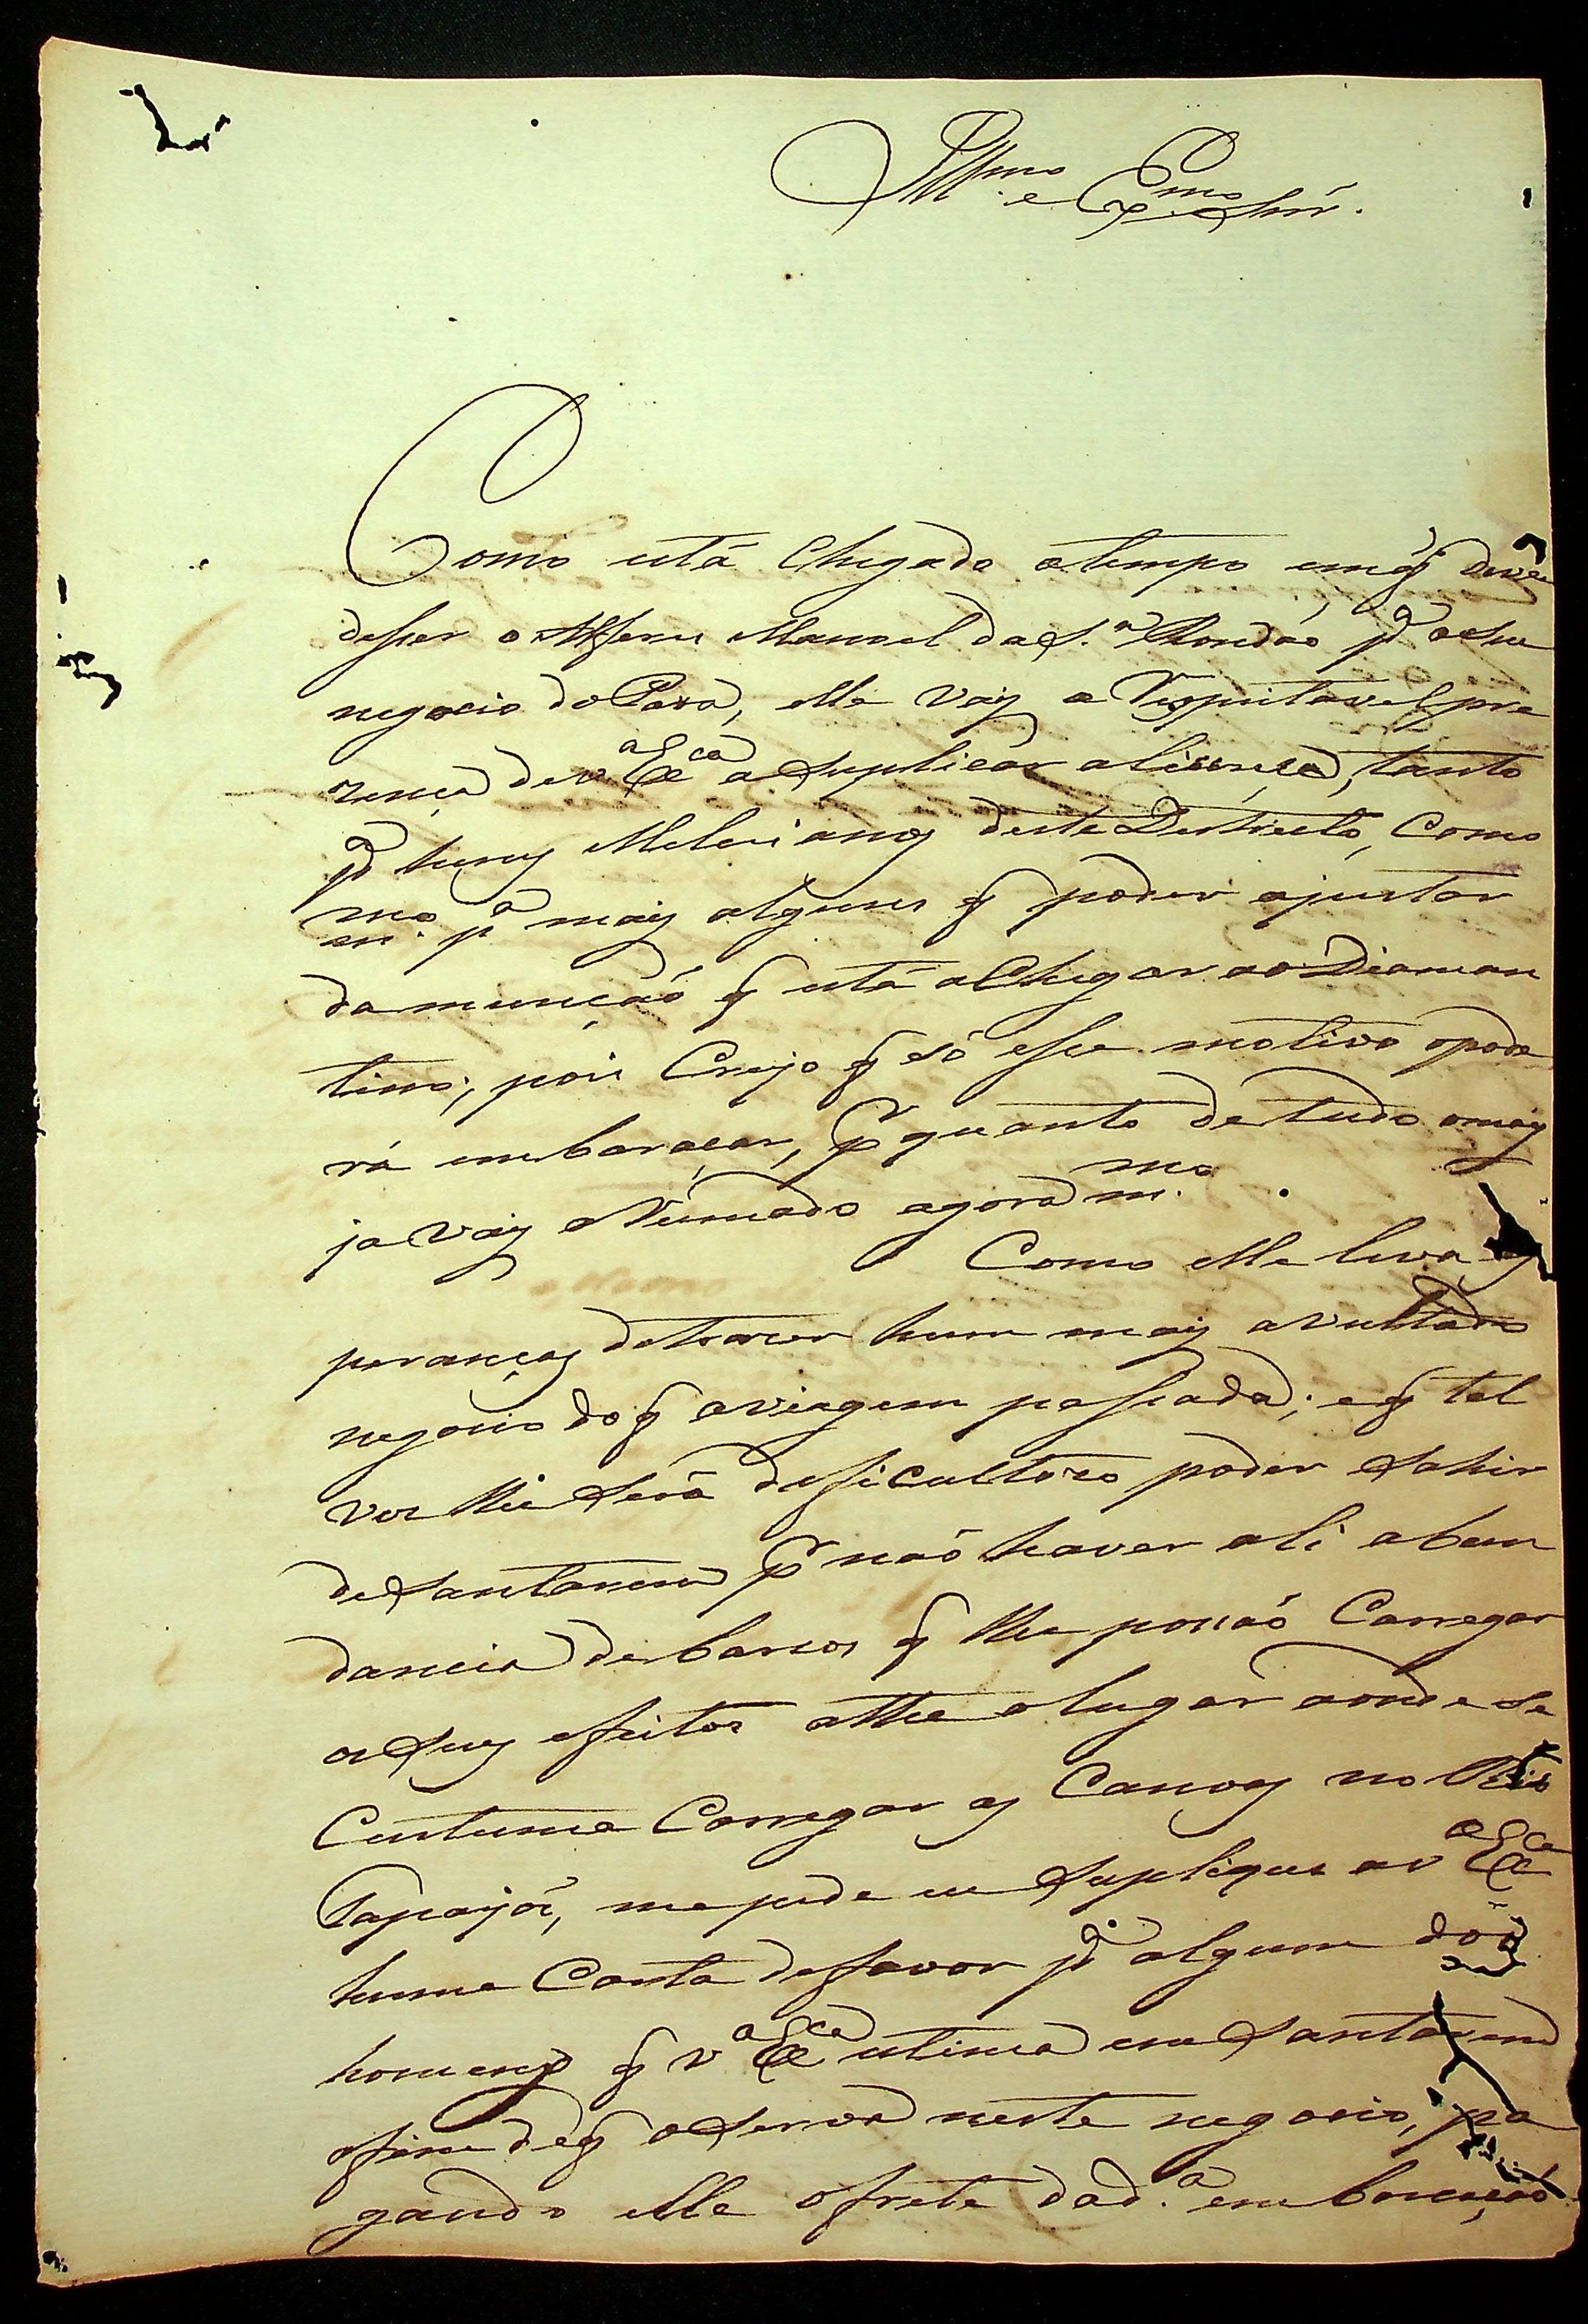 Illmo. e Exmo. Snr.
Como está chegado o tempo em q̃ deve
desser o Alferes Manoel da S.a Rondão p.a o seu
negocio do Pará, elle vay a Respeitavel pre
zença de V.a Ex.ca a Suplicar a licença, tanto
p.a huns Melicianos deste Destricto, como
mmo. p.a mays alguns q̃ poder ajustar
da munção q̃ está a chegar ao Diaman
tino; pois Creyo q̃ só esse motivo o pode
rá embaraçar, p.r quanto de tudo o mays
ja vay arrumado agora mmo.
Como elle leva
peranças de trazer hum mays avultado
negocio do q̃ a viagem passada; e q̃ tal
ves lhe será deficultozo poder Sahir
de Santarem p.r não haver ali abun
dancia de barcos q̃ lhe possão Carregar
os Seus efeitos athe o lugar aonde se
Custuma Carregar as Canoas no Rio
Tapajós, me pede eu Suplique a V.a Ex.ca
huma Carta de favor p.a algum dos
homens q̃ V.a Ex.ca estima em Santarem
a fim de q̃ o Serva neste negocio, pa
gando elle o frete da d.a embarcação